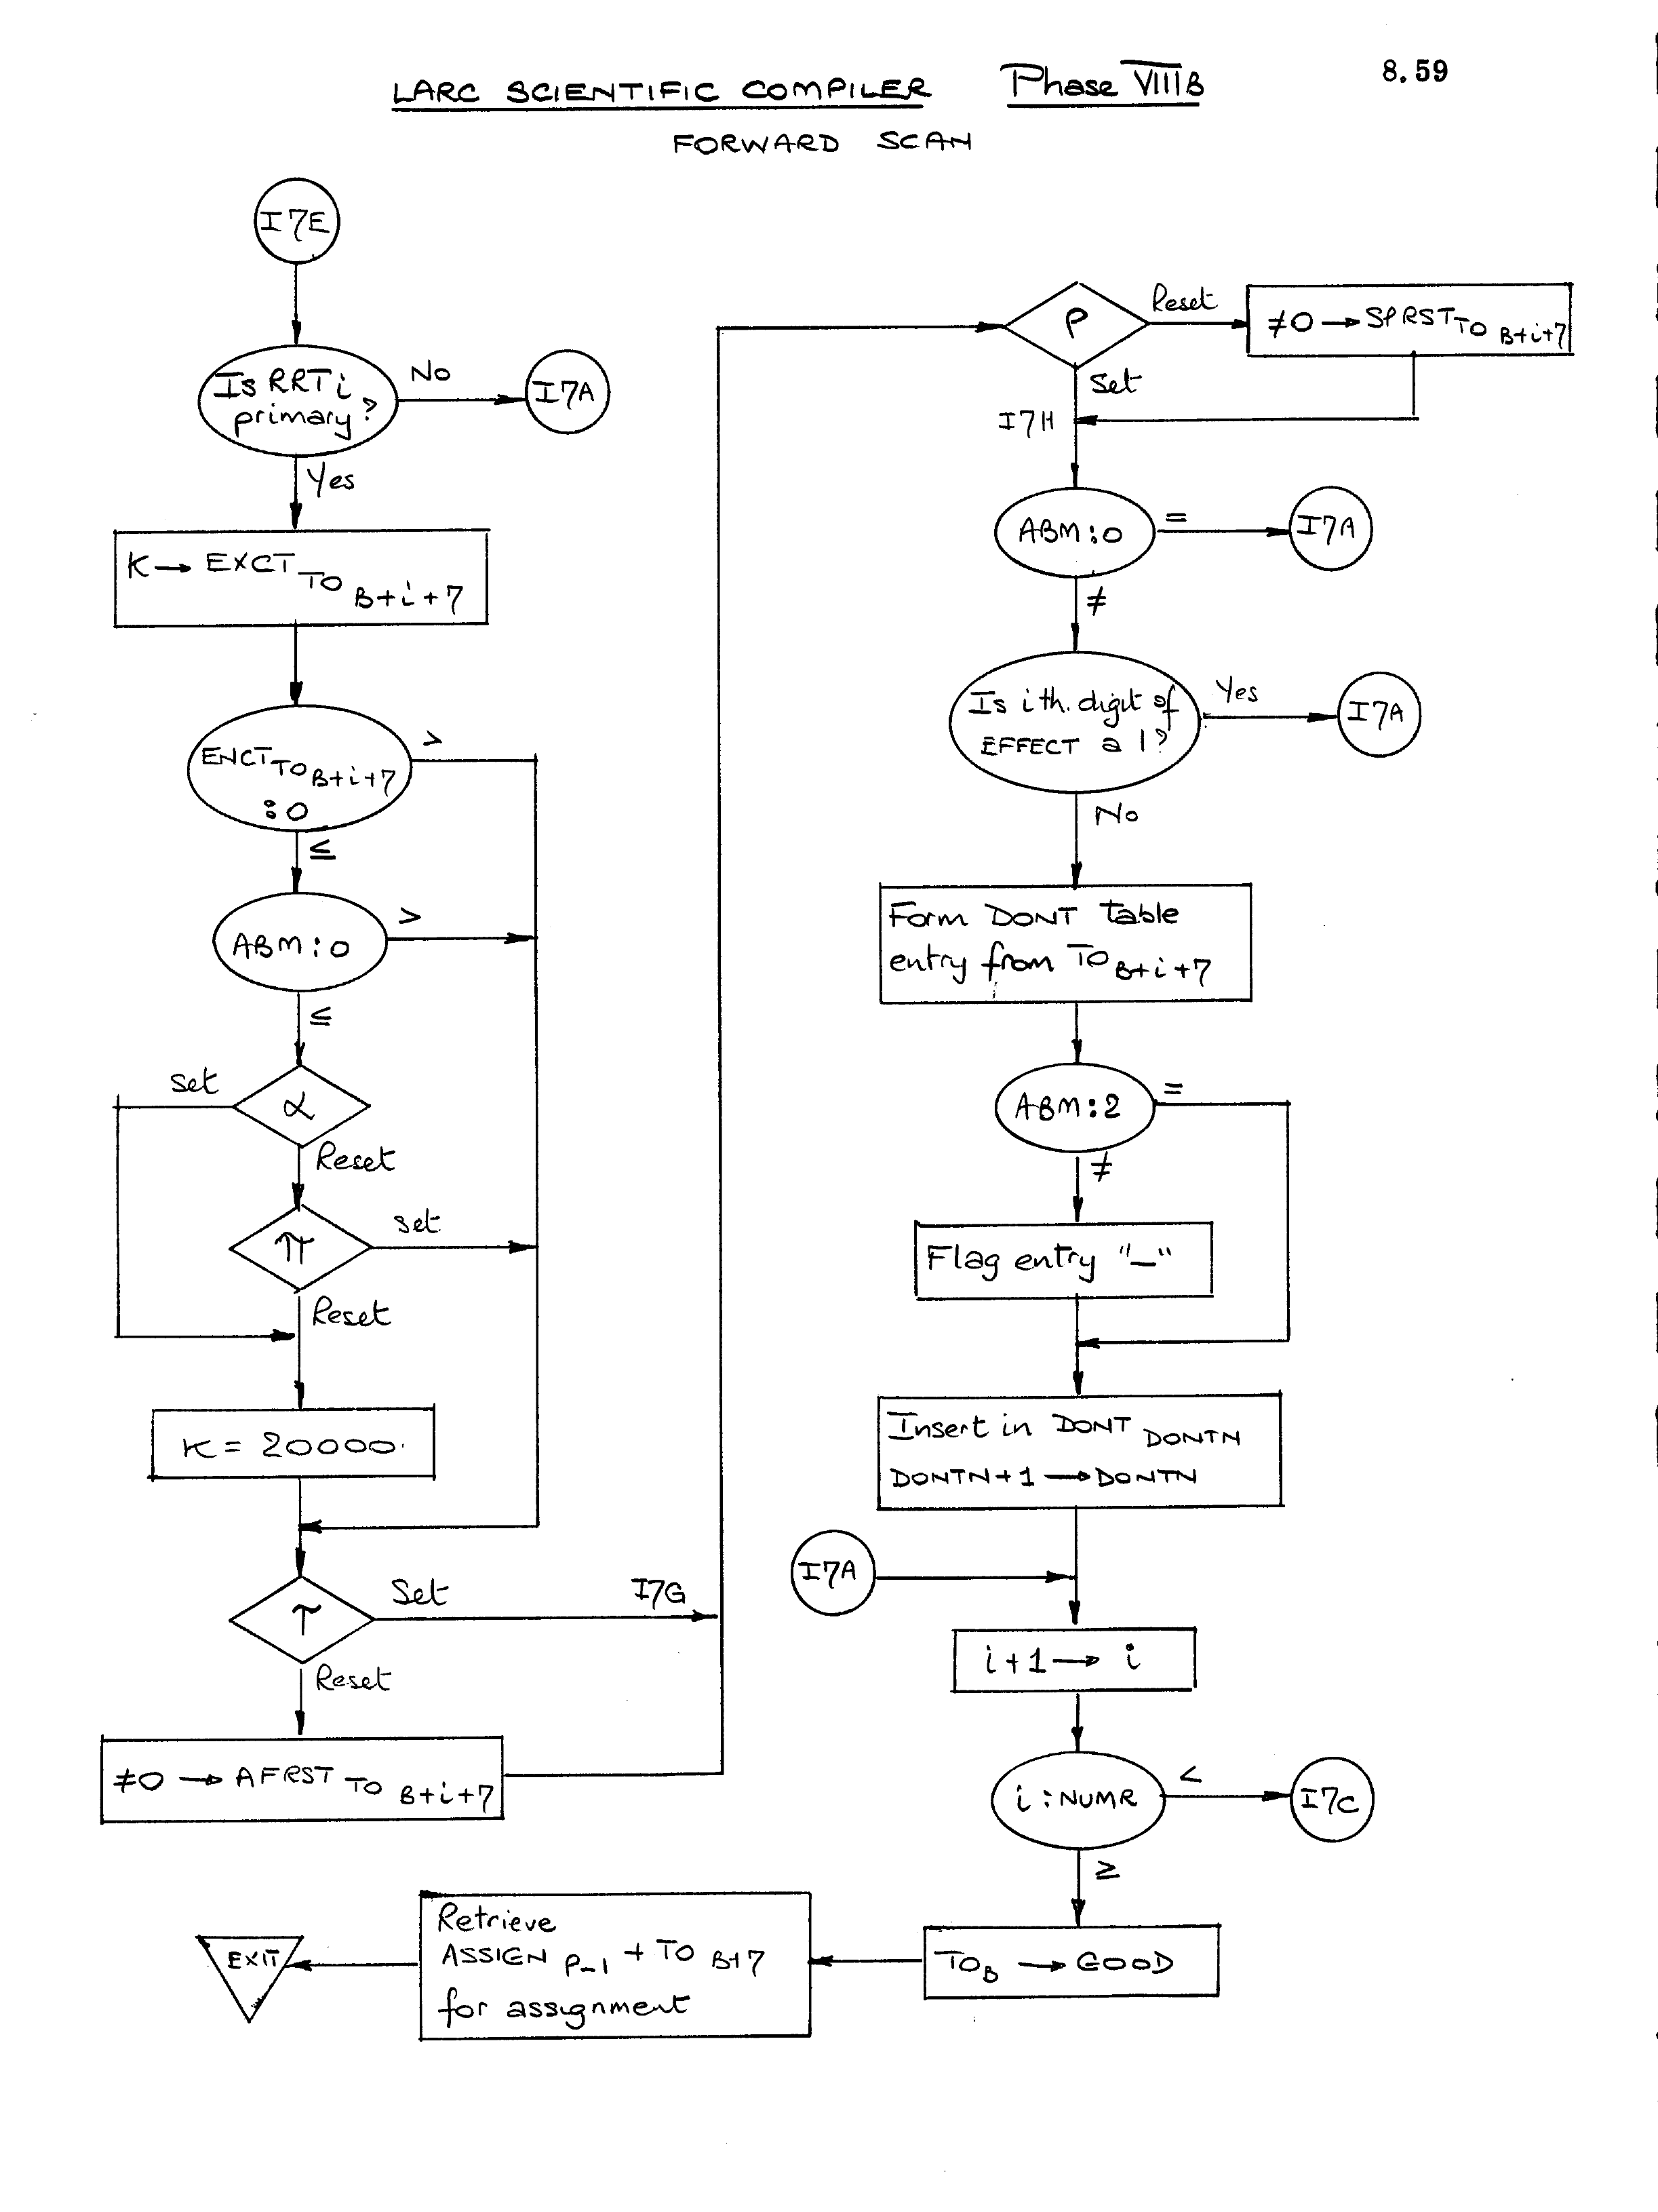 LARC SCIENTIFIC COMPILER Phase VIIIB 8.59
FORWARD SCAN
I7E
Is RRTi
primary?
No
I7A
Yes
K → EXCT TO B+i+7
ENCT TO B+i+7
:0
>
≤
ABM:0
>
≤
α
set
Reset
π
set
Reset
K = 20000.
τ
Set
I7G
Reset
≠0 → AFRST TO B+i+7
ρ
Reset
≠0 → SPRST TO B+i+7
Set
I7H
ABM:0
=
I7A
≠
Is ith. digit of
EFFECT a 1?
Yes
I7A
No
Form DONT table
entry from TO B+i+7
ABM:2
=
≠
Flag entry "–"
Insert in DONT DONTN
DONTN+1 → DONTN
I7A
i+1 → i
i:NUMR
<
I7C
≥
TO B → GOOD
Retrieve
ASSIGN P-1 + TO B+7
for assignment
EXIT